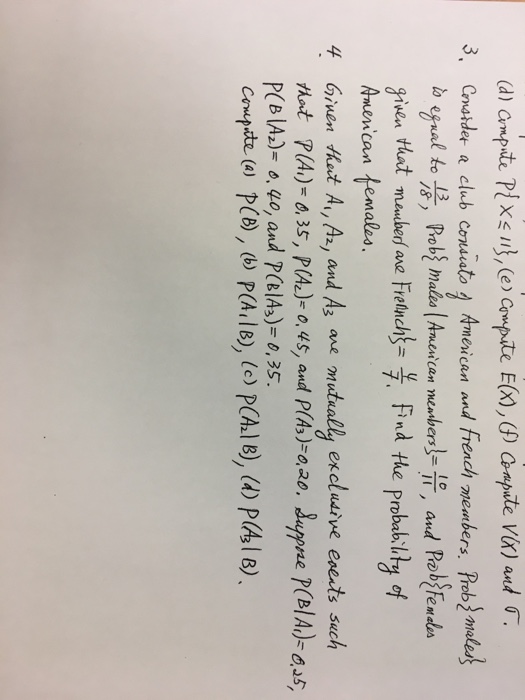 (d) Compute P{X ≤ 11}, (e) Compute E(X), (f) Compute V(X) and σ.
3. Consider a club consists of American and French members. Prob{males}
is equal to 13/18, Prob{males | American members} = 10/11, and Prob{Females
given that member are French} = 4/7. Find the probability of
American females.
4 Given that A1, A2, and A3 are mutually exclusive events such
that P(A1) = 0.35, P(A2) = 0.45, and P(A3) = 0.20. Suppose P(B|A1) = 0.25,
P(B|A2) = 0.40, and P(B|A3) = 0.35.
Compute (a) P(B), (b) P(A1|B), (c) P(A2|B), (d) P(A3|B).